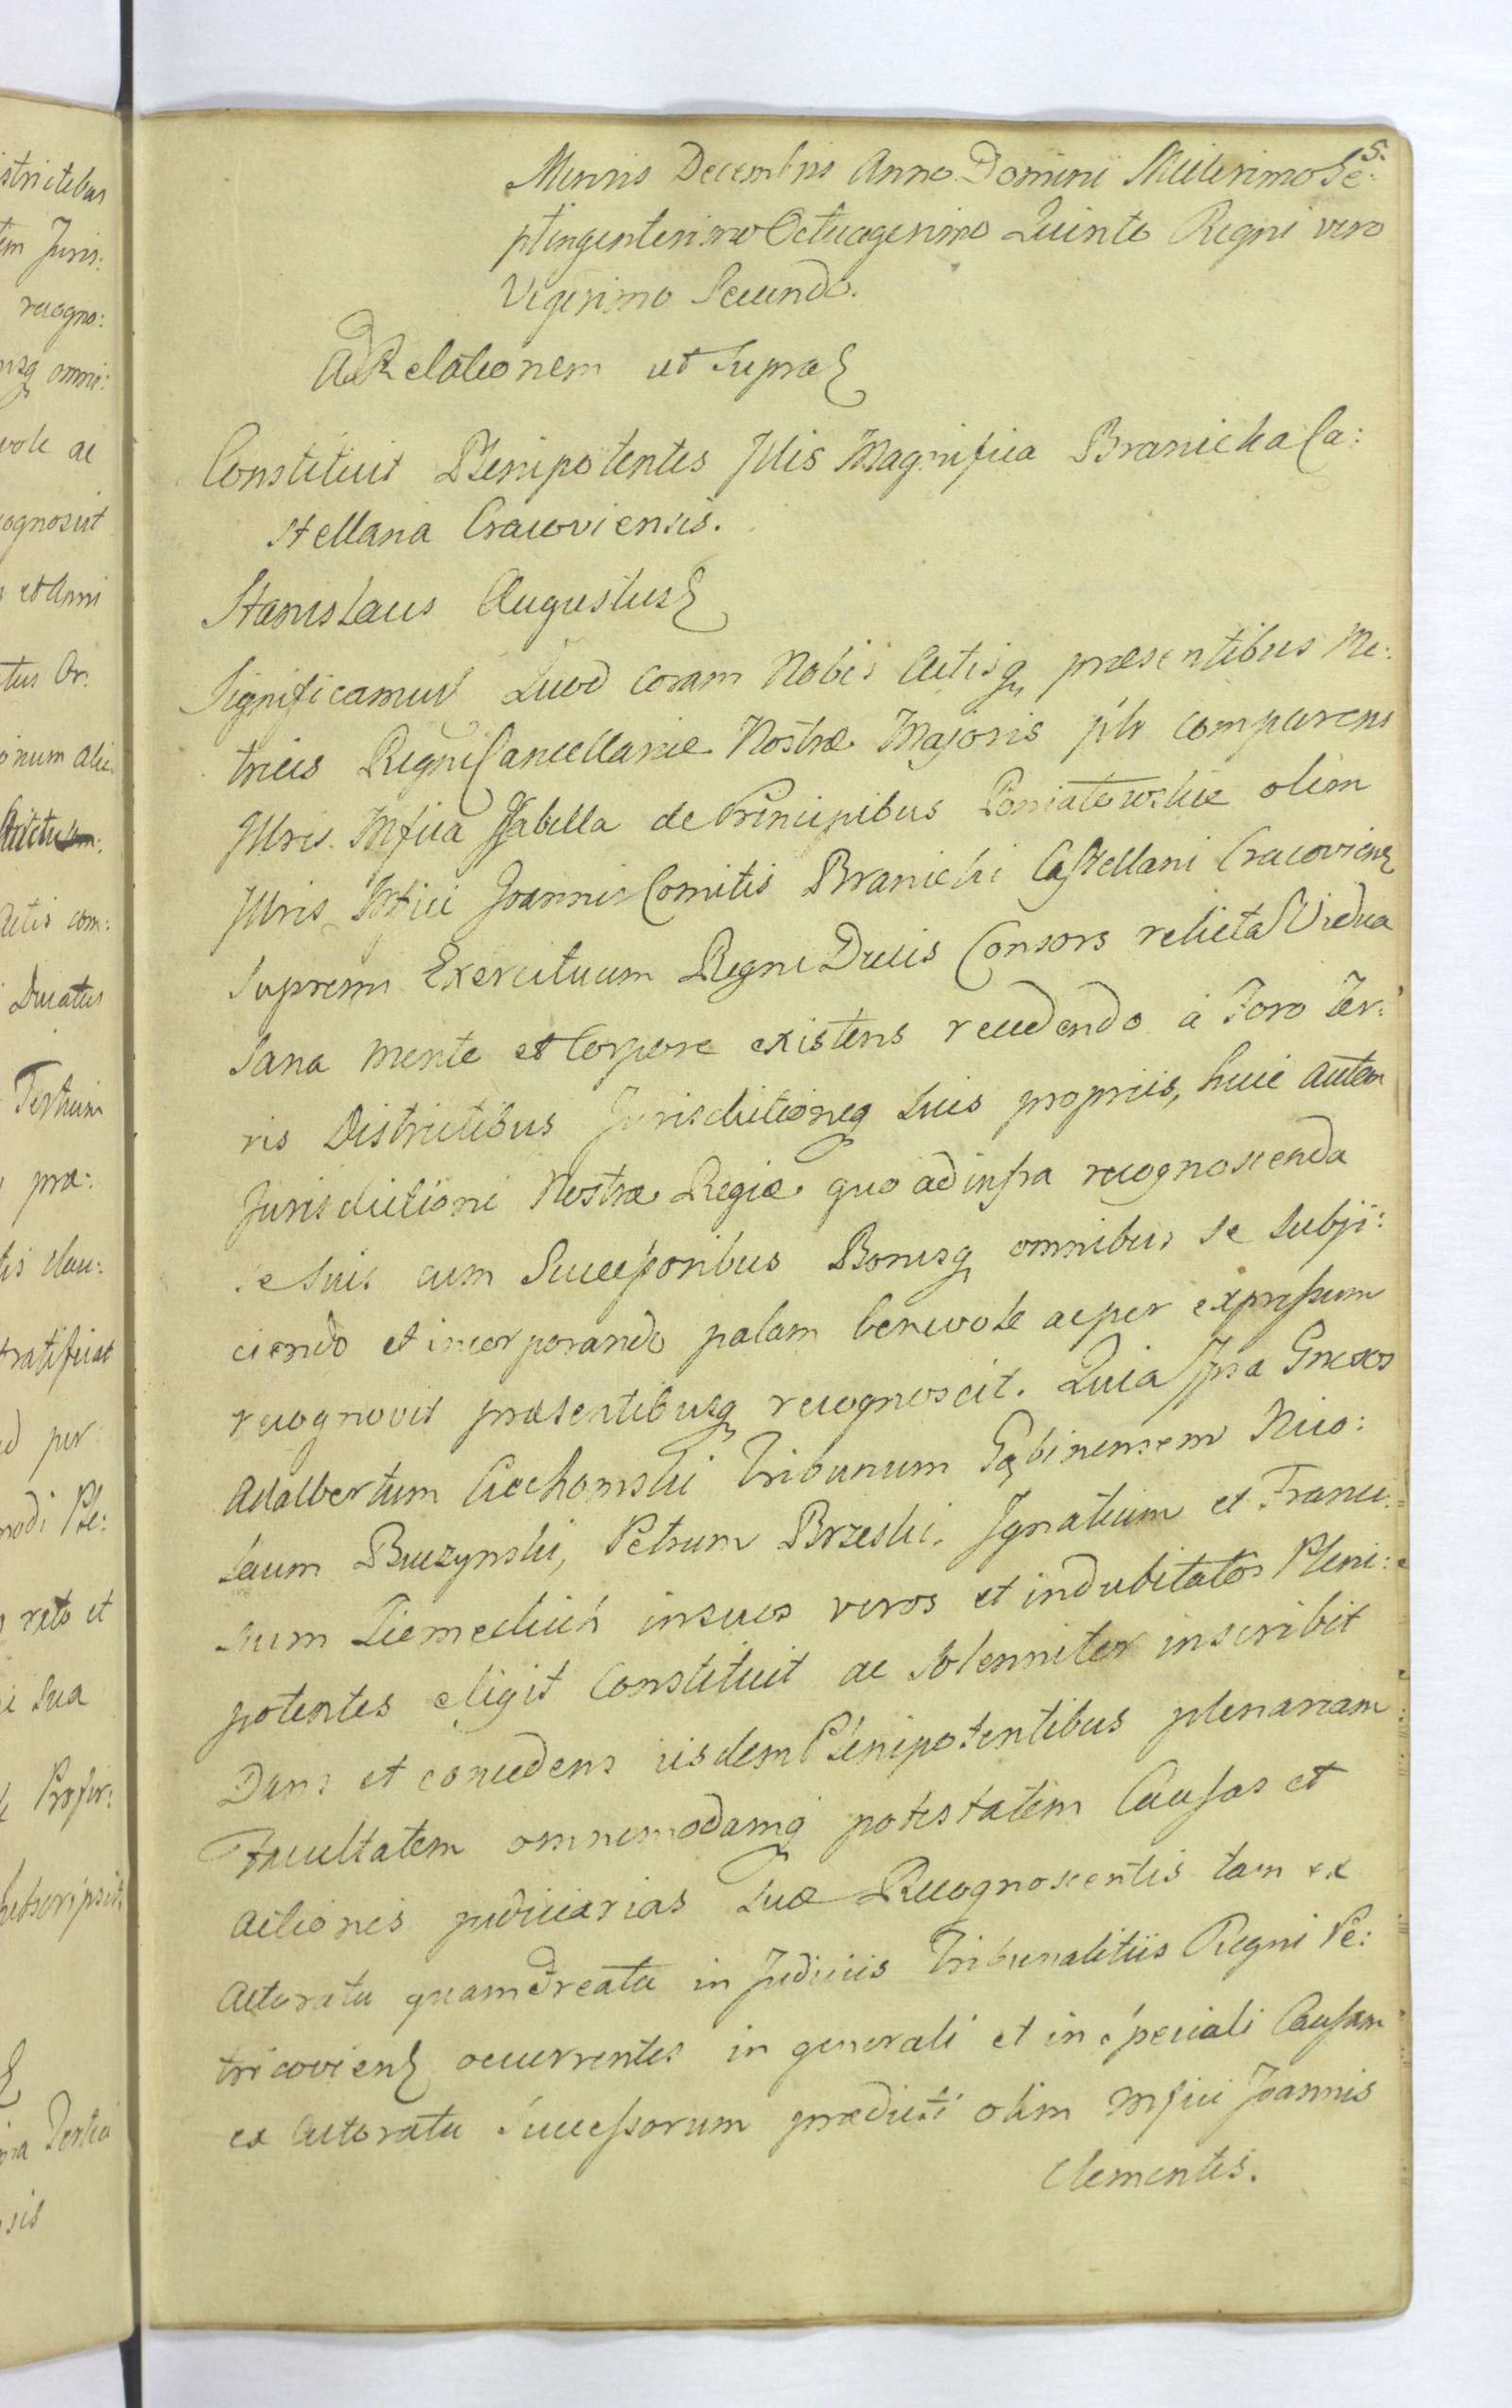 5.
Mensis Decembris Anno Domini Millesimo Se:
ptingentesimo Octuagesimo Quinto Regni vero
Vigesimo Secundo.
Ad Relationem ut supra
Constituit Plenipotentes Illis Magnifica Branicka Ca:
stellana Cracoviensis.
Stanislaus Augustus
Significamus Quod coram Nobis Actisq presentibus Me:
trices Regni Cancellariæ Nostræ Majoris plr comparens
Illris Mfica Isabella de Principibus Poniatowskie olim
Illris Mfici Joannis Comitis Branicki Castellani Cracovien
Supremi Exercituum Regni Ducis Consors relicta Vidua
Sana mente et Corpore existens recedendo a Foro Ter:
ris Districtibus Jurisdictioneq suis propriis, huic autem
Jurisdictioni Nostræ Regiæ quo ad infra recognoscenda
se suis cum Successoribus Bonisq omnibus se subji:
ciendo et incorporando palam benevole ac per expressum
recognovit præsentibusq recognoscit. Quia Ipsa Gnesos
Adalbertum Ciechomski Tribunum Gąbinensem Nico:
laum Buczynski, Petrum Brzeski, Ignatium et Franci:
scum Niemedlich in suos veros et indubitatos Pleni:
potentes eligit Constituit ac solenniter inscribit
Dans et concedens iisdem Plenipotentibus plenariam
Facultatem omnimodamq potestatem Causas et
actiones judiciarias suæ Recognoscentis tam ex
Actoratu quam et reatu in Judiciis Tribunalitiis Regni Pe:
tricovien occurrentes in generali et in speciali Causam
ex Actoratu Successorum prædicti olim Mfici Joannis
Clementis.
istrictibus
em Juris:
recogno:
usq omni:
vole ac
cognoscit
et Anni
tus Or:
onum alic
Actis com:
Ducatus
Tertium
præ:
tis clau:
ratificat
d per
modi Ple:
rato et
i sua
Profes:
subscripsit
Tertia
sis